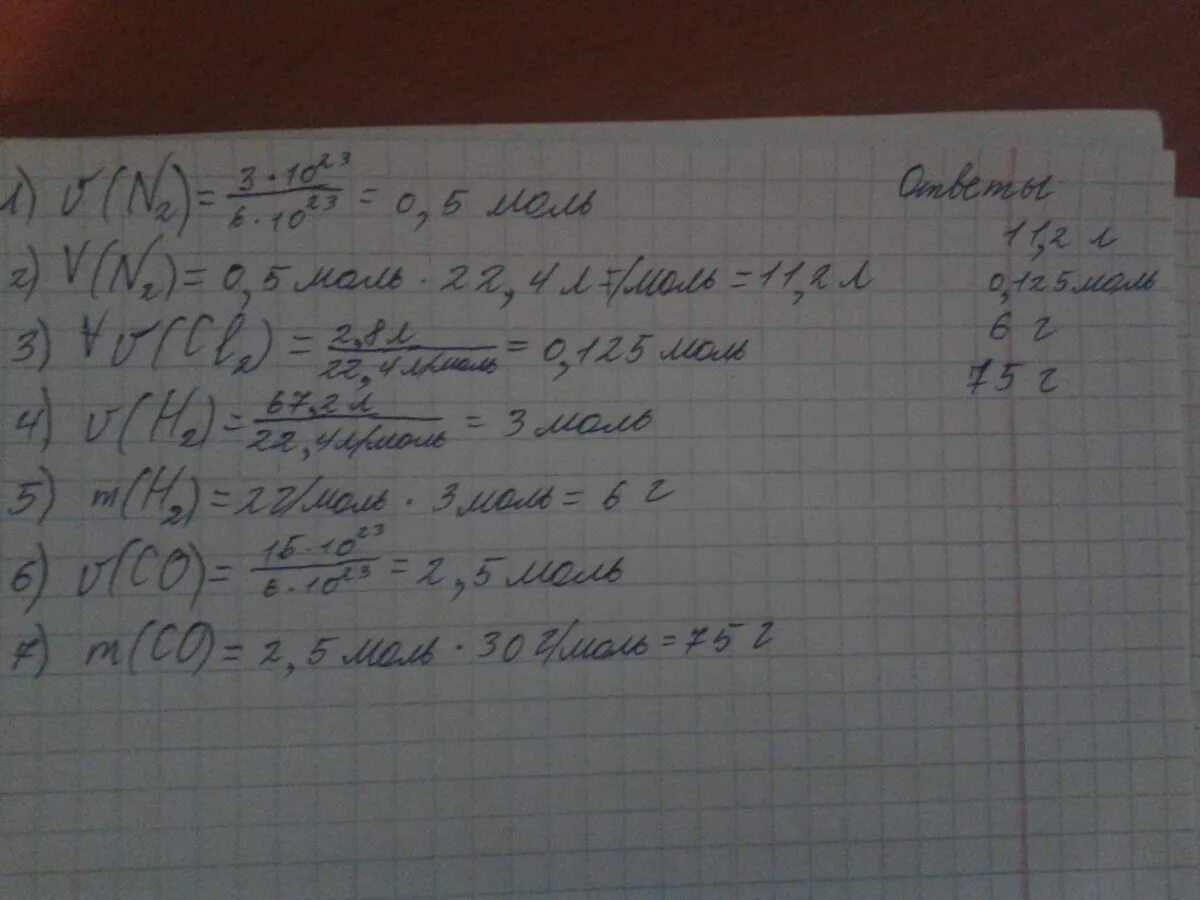 1) υ(N₂) = 3·10²³ / 6·10²³ = 0,5 моль
2) V(N₂) = 0,5 моль · 22,4 л/моль = 11,2 л
3) υ(Cl₂) = 2,8 л / 22,4 л/моль = 0,125 моль
4) υ(H₂) = 67,2 л / 22,4 л/моль = 3 моль
5) m(H₂) = 2 г/моль · 3 моль = 6 г
6) υ(CO) = 15·10²³ / 6·10²³ = 2,5 моль
7) m(CO) = 2,5 моль · 30 г/моль = 75 г
Ответы
11,2 л
0,125 моль
6 г
75 г